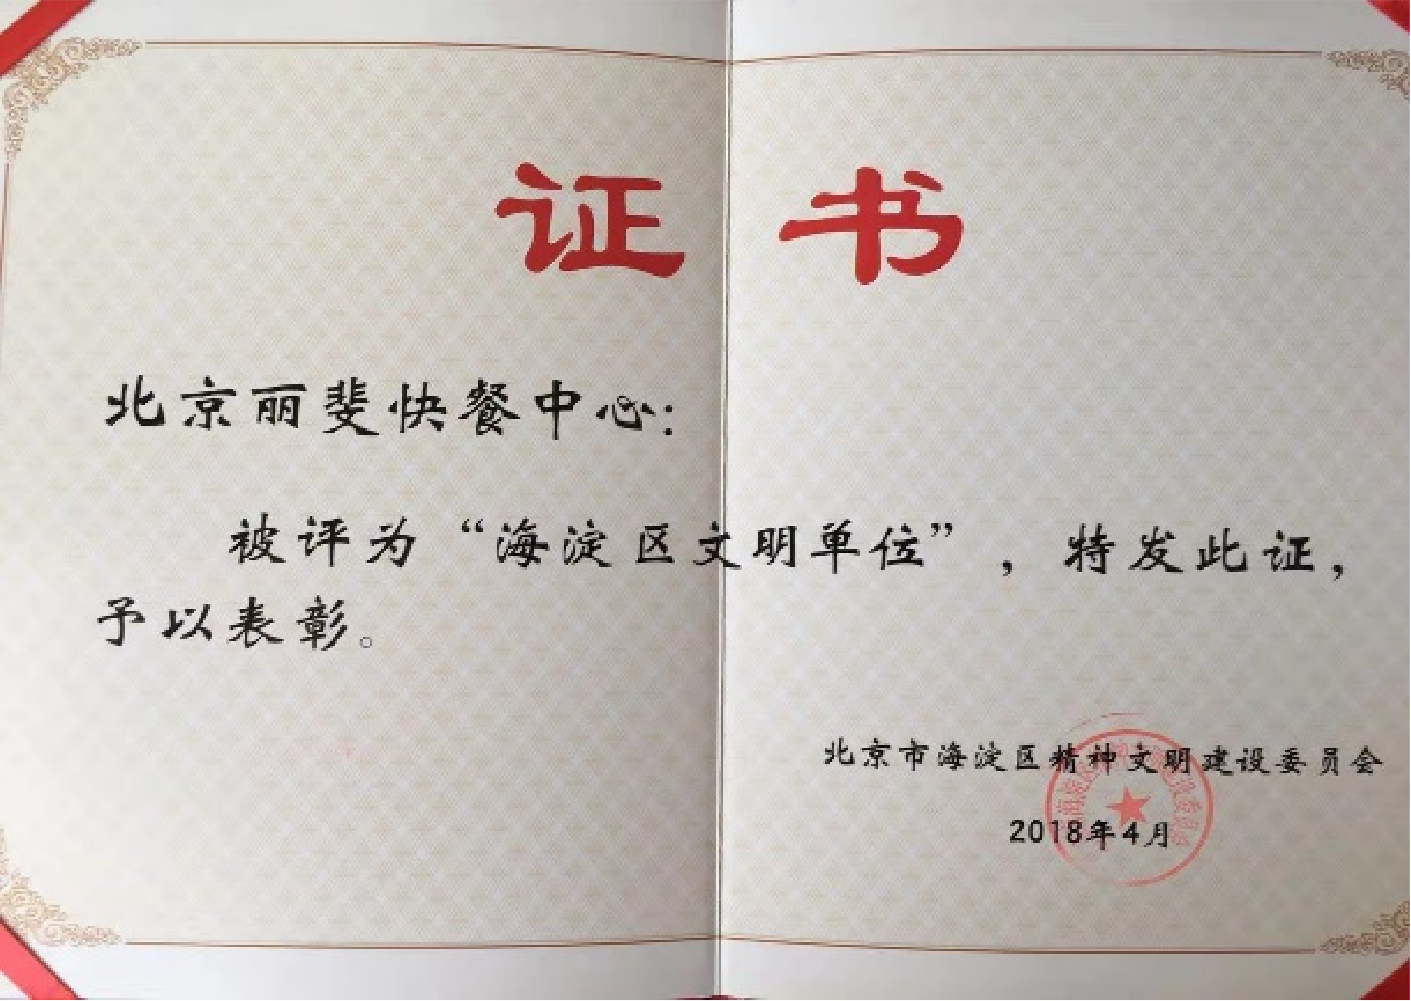 证书
北京丽斐快餐中心：
被评为“海淀区文明单位”，特发此证，
予以表彰。
北京市海淀区精神文明建设委员会
2018年4月